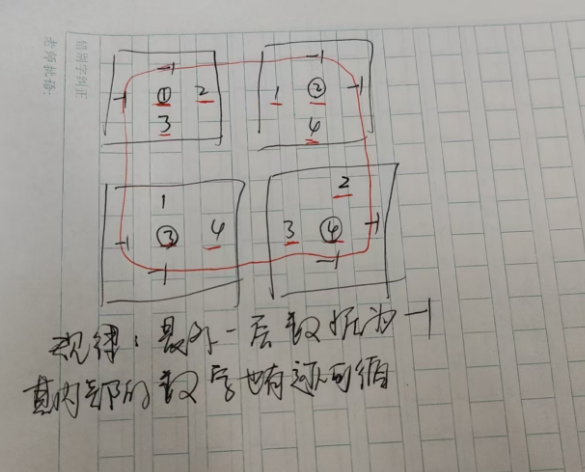 错别字纠正
老师批格:
-1 -1
-1 ① 2 1 ② -1
3 4
1 2
-1 ③ 4 3 ④ -1
-1 -1
规律：最外一层数据为-1
其内部的数字也有迹可循